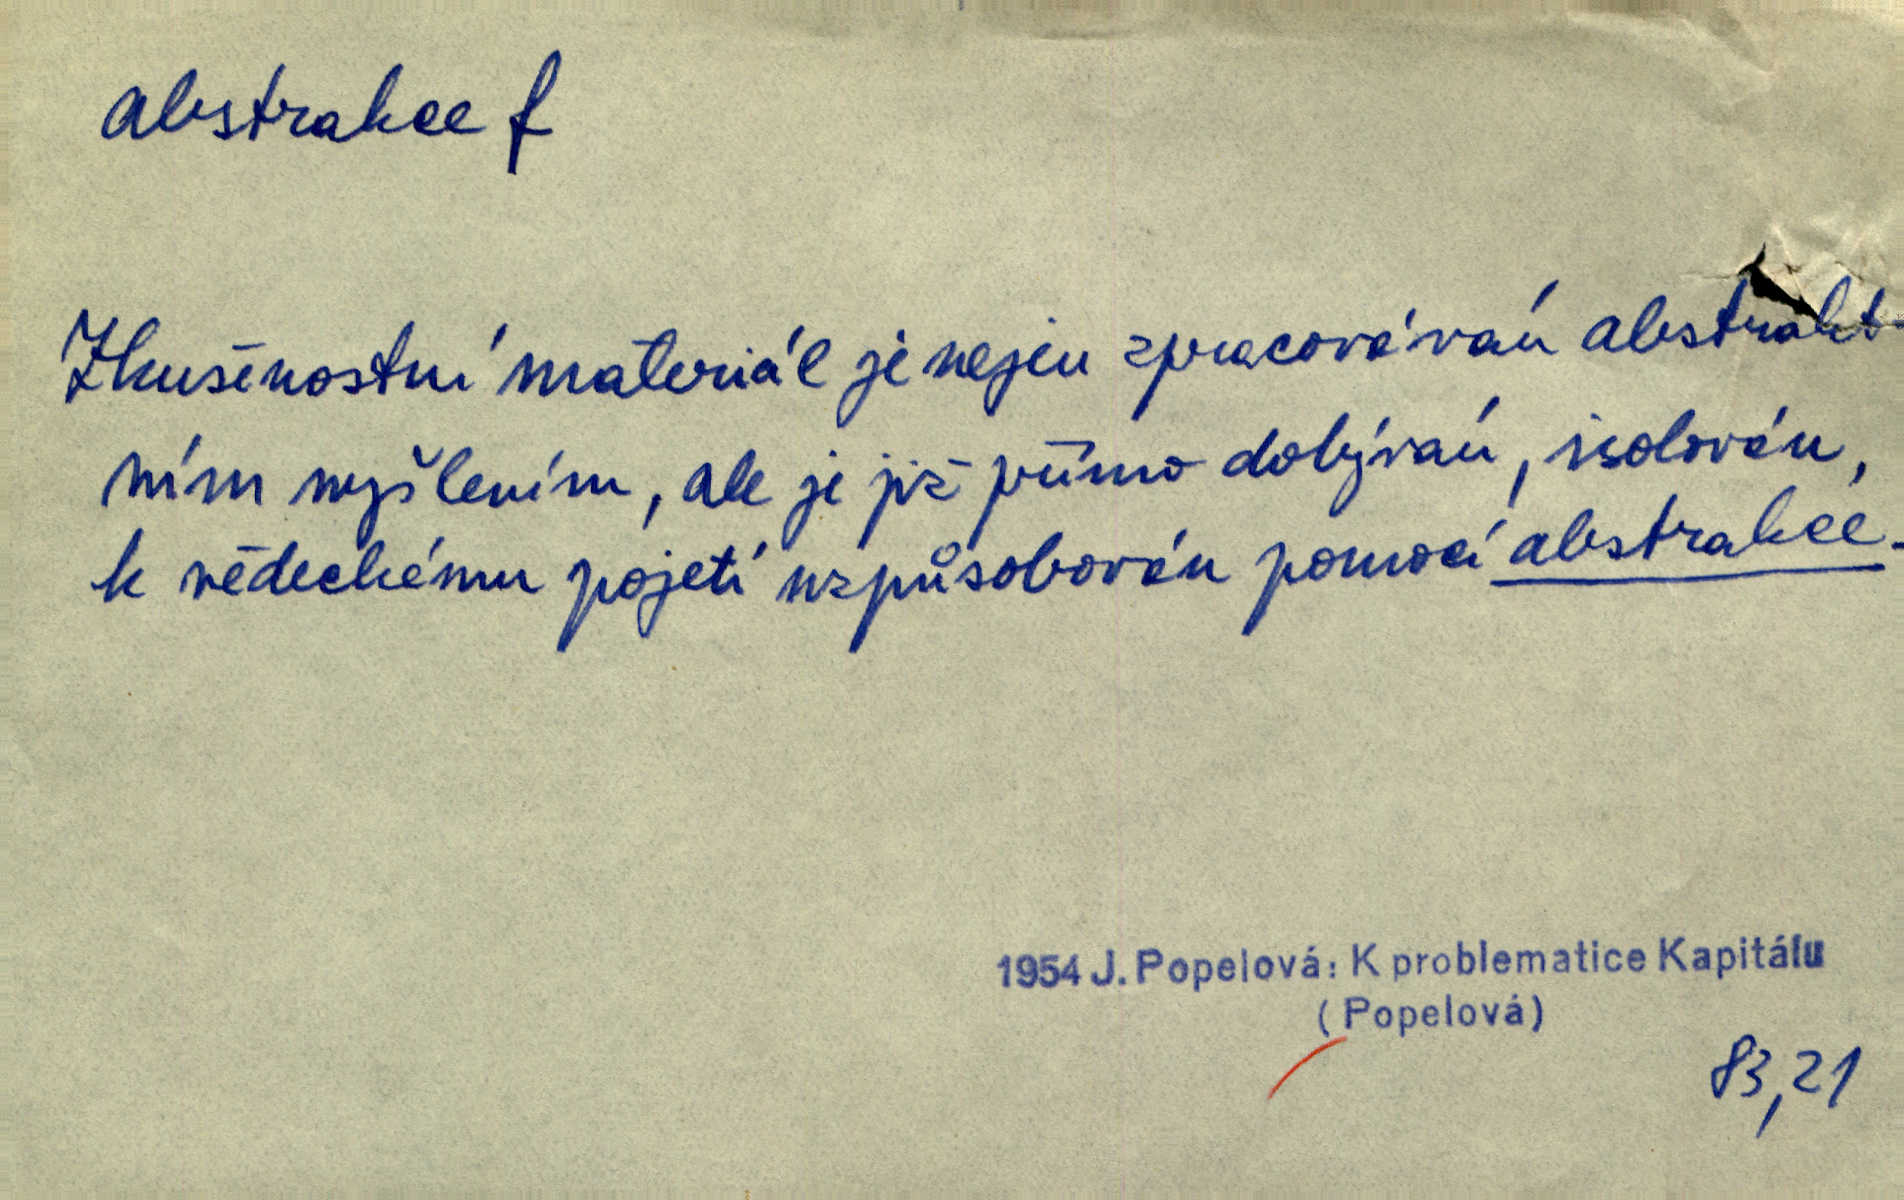 abstrakce f
Zkušenostní materiál je nejen zpracováván abstrakt-
ním myšlením, ale je již přímo dobýván, isolován,
k vědeckému pojetí uzpůsobován pomocí abstrakce.
1954 J. Popelová: K problematice Kapitálu
(Popelová)
83,21